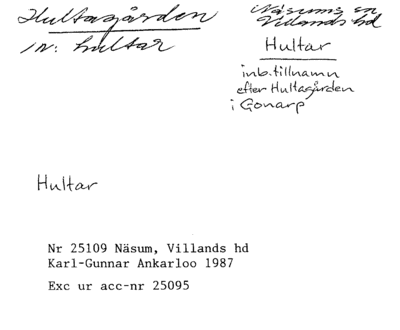 Hultagården
iv: hultar
Näsums sn
Villands hd
Hultar
inb. tillnamn
efter Hultagården
i Gonarp
Hultar
Nr 25109 Näsum, Villands hd
Karl-Gunnar Ankarloo 1987
Exc ur acc-nr 25095